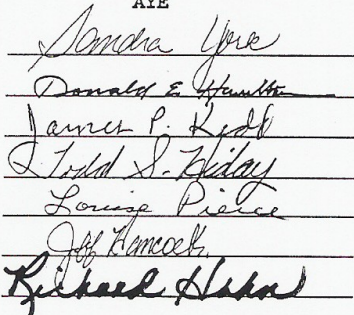 AYE
Sandra
Donald E. Hamilton
James P. Kidd
Todd S. Hiday
Louise Pierce
Jeff Hancock
Richard Hahn